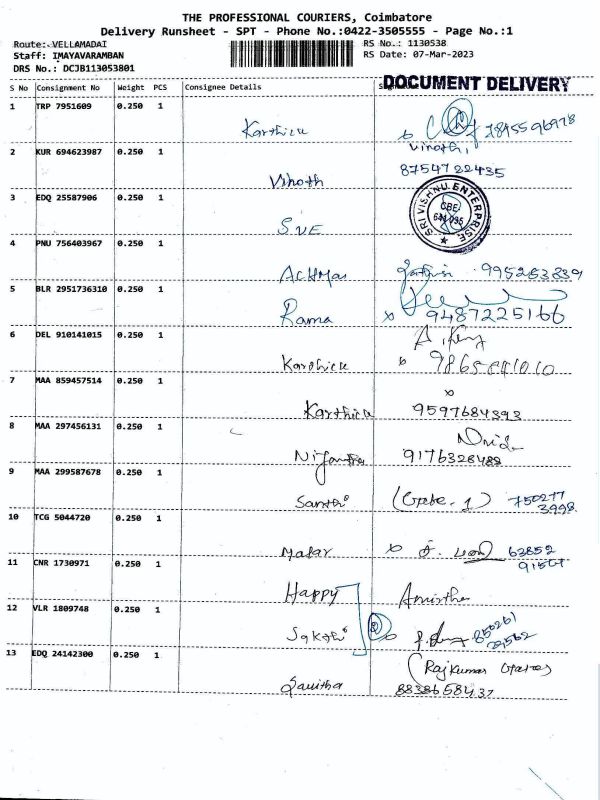 THE PROFESSIONAL COURIERS, Coimbatore
Delivery Runsheet - SPT - Phone No.:0422-3505555 - Page No.:1
Route: VELLAMADAI
RS No.: 1130538
Staff: IMAYAVARAMBAN
RS Date: 07-Mar-2023
DRS No.: DCJB113053801
DOCUMENT DELIVERY
S No Consignment No Weight PCS Consignee Details
1 TRP 7951609 0.250 1
Karthick
2 KUR 694623987 0.250 1
Vinoth
Vinoth,
8754722435
3 EDQ 25587906 0.250 1
SVE
SRI VISHNU ENTERPRISE
CBE
4 PNU 756403967 0.250 1
5 BLR 2951736310 0.250 1
Rama
9487225166
6 DEL 910141015 0.250 1
Karthick
7 MAA 859457514 0.250 1
Karthick
9597684393
8 MAA 297456131 0.250 1
9176328488
9 MAA 299587678 0.250 1
Santhi
750277
3998
10 TCG 5044720 0.250 1
Malar
63852
11 CNR 1730971 0.250 1
Happy
Amirtha
12 VLR 1809748 0.250 1
Sakthi
13 EDQ 24142300 0.250 1
Savitha
Rajkumar
8838658437